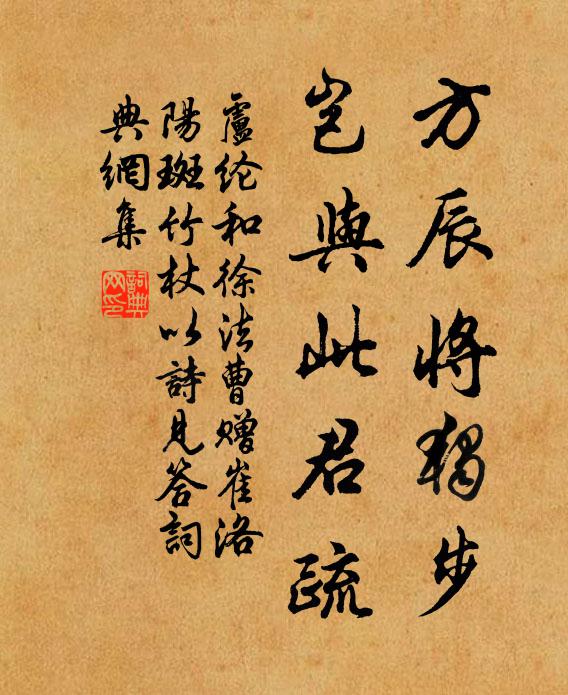 方辰将独步
岂與此君疏
盧纶和徐法曹赠崔洛
陽斑竹杖以詩見答詞
典網集
詞典網印